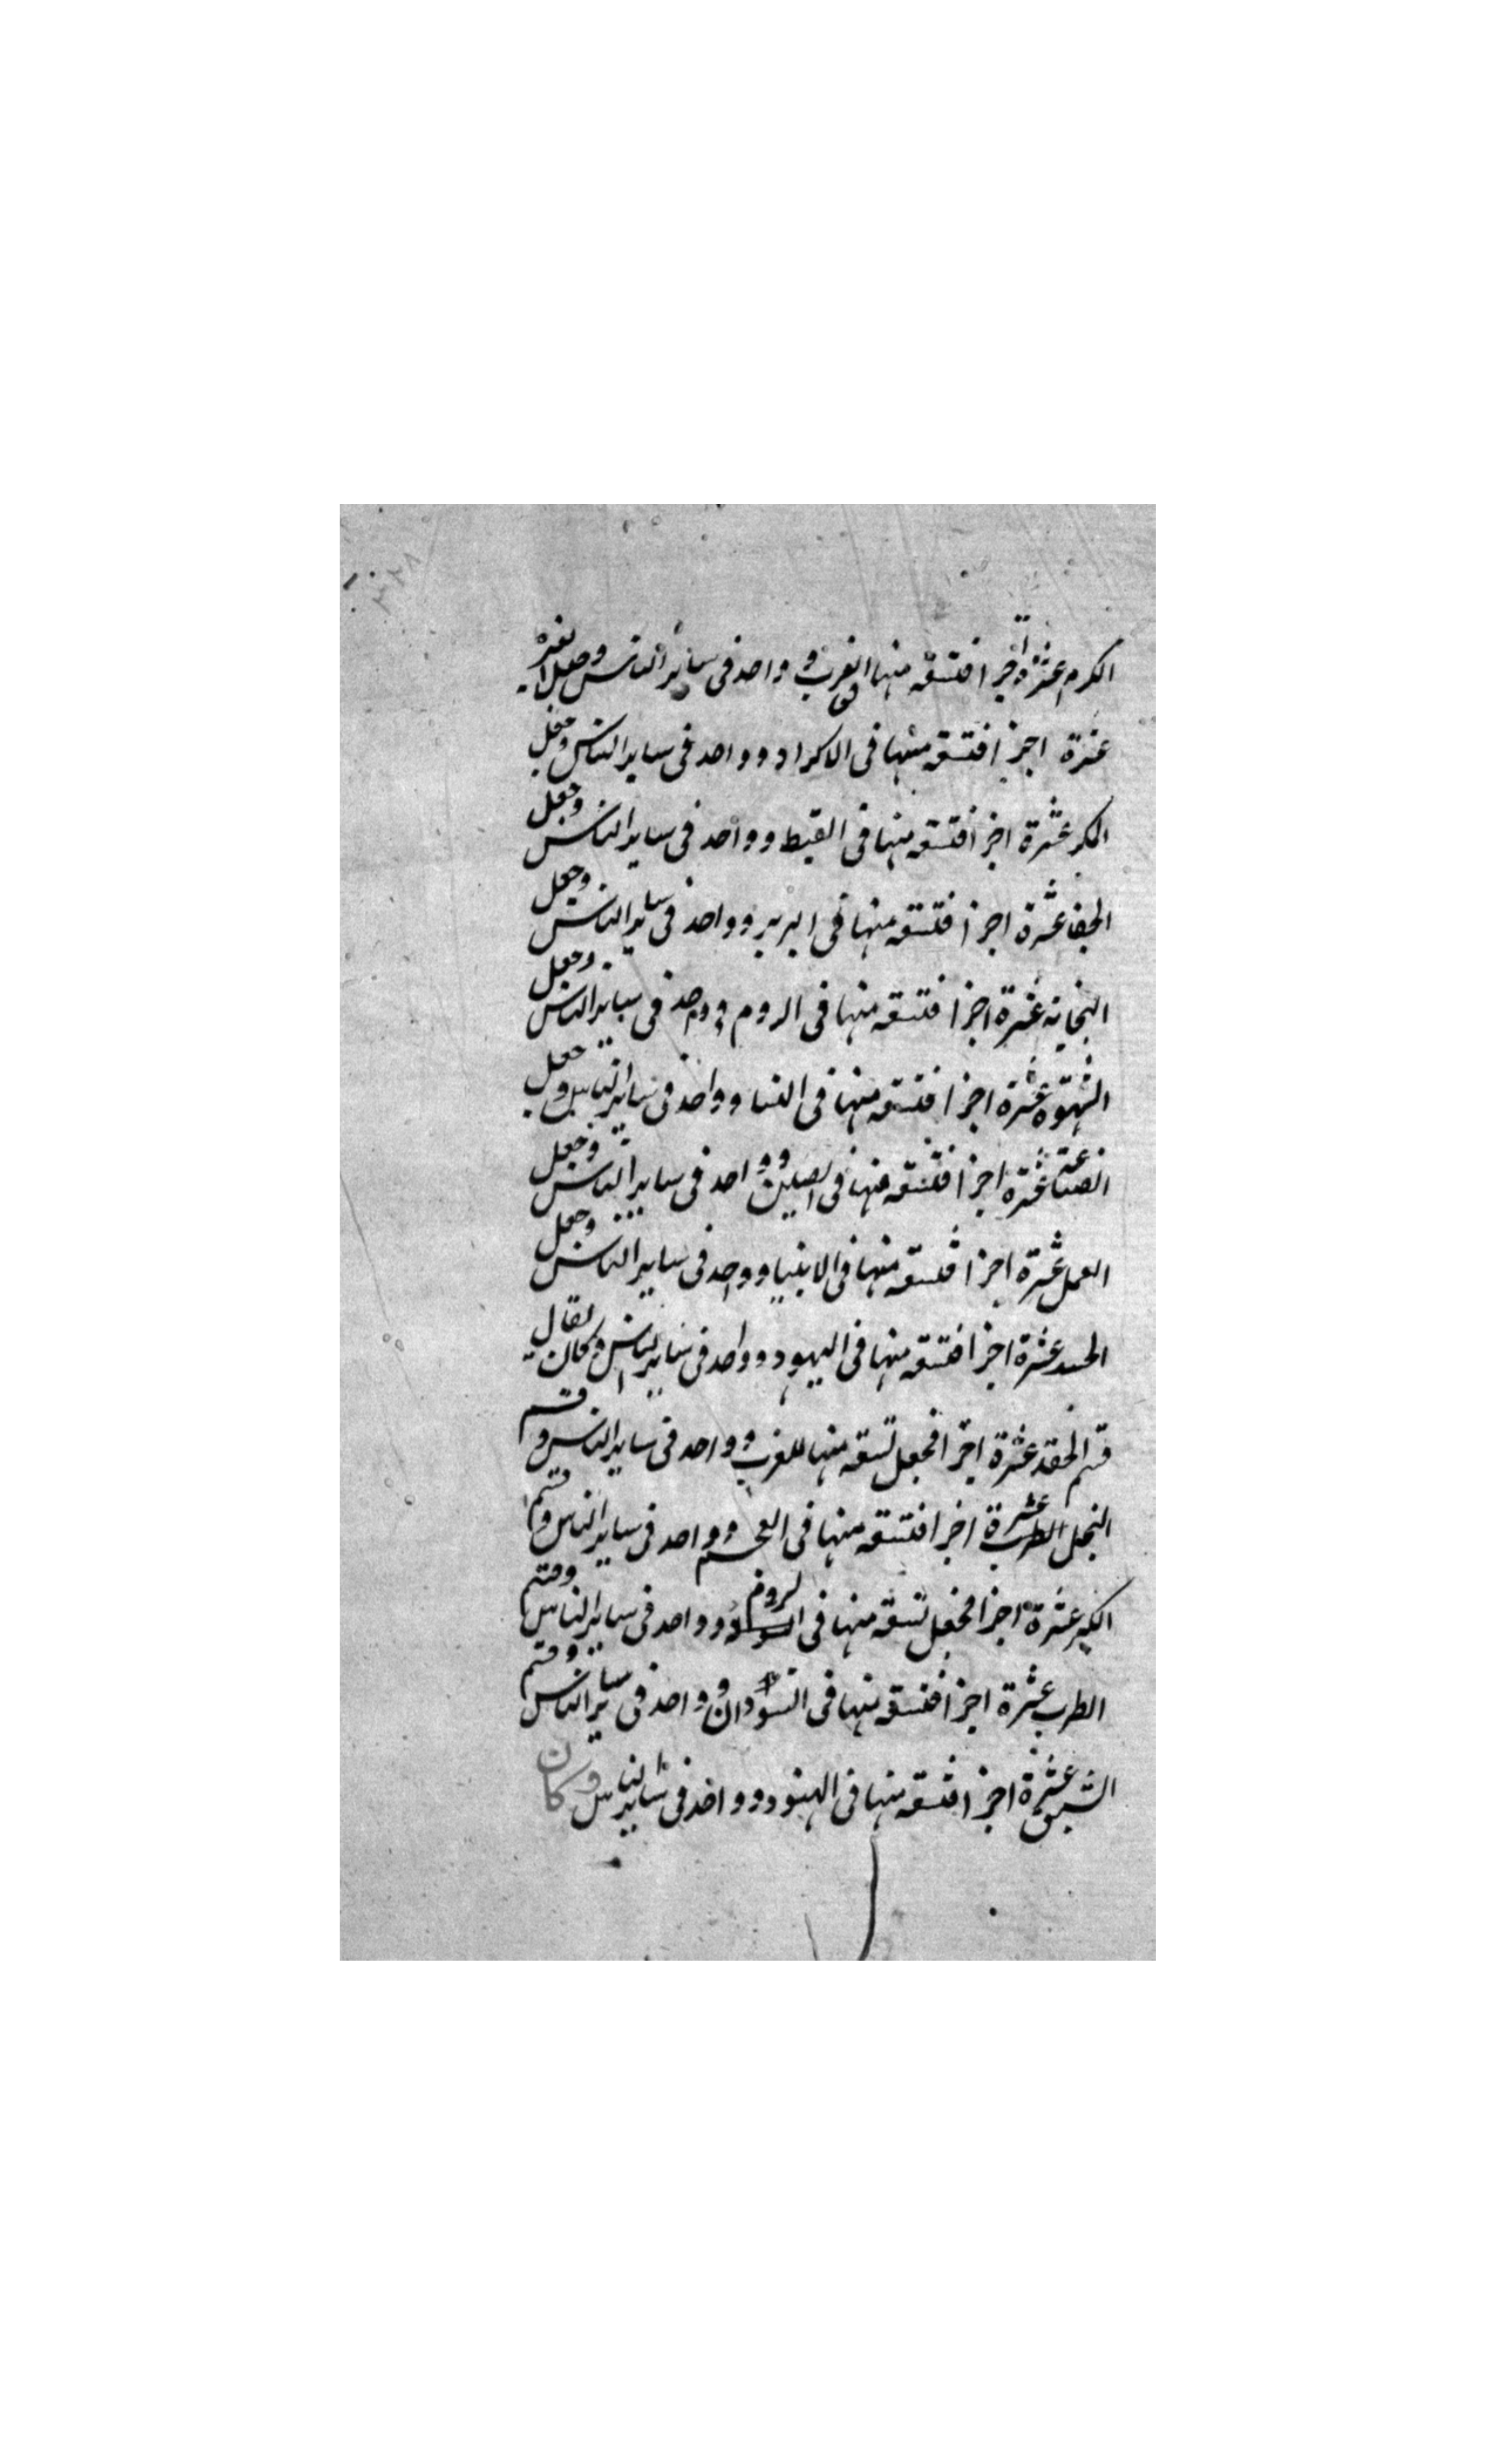 الكرم عشرة اجزا فتسعه منها فى العرب وواحد فى ساير الناس وجعل الغيرة
عشرة اجزا فتسعه منها فى الاكراد وواحد فى ساير الناس وجعل
المكر عشرة اجزا فتسعه منها فى القبط وواحد فى ساير الناس وجعل
الجفا عشرة اجزا فتسعه منها فى البربر وواحد فى ساير الناس وجعل
النجابه عشرة اجزا فتسعه منها فى الروم وواحد فى ساير الناس وجعل
الشهوة عشرة اجزا فتسعه منها فى النسا وواحد فى ساير الناس وجعل
الصناعة عشرة اجزا فتسعه منها فى الصين وواحد فى ساير الناس وجعل
العمل عشرة اجزا فتسعه منها فى الانبيا وواحد فى ساير الناس وجعل
الحسد عشرة اجزا فتسعه منها فى اليهود وواحد فى ساير الناس وكان يقال
قسم الحقد عشرة اجزا فجعل تسعه منها للعرب وواحد فى ساير الناس وقسم
البخل عشرة اجزا فتسعه منها فى العجم وواحد فى ساير الناس وقسم
الكبر عشرة اجزا فجعل تسعه منها فى الروم وواحد فى ساير الناس وقسم
الطرب عشرة اجزا فتسعه منها فى السودان وواحد فى ساير الناس وقسم
الشبق عشرة اجزا فتسعه منها فى الهنود وواحد فى ساير الناس وكان